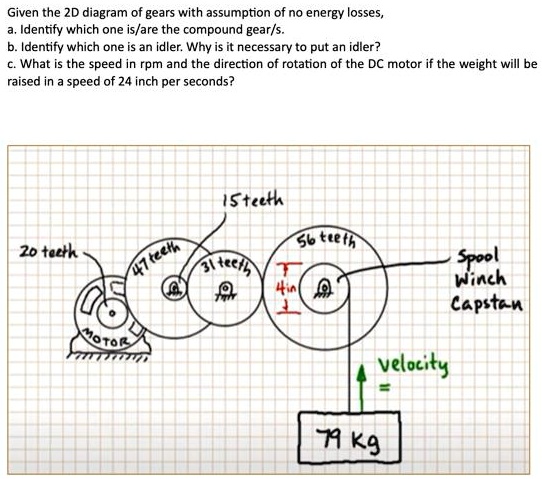 Given the 2D diagram of gears with assumption of no energy losses,
a. Identify which one is/are the compound gear/s.
b. Identify which one is an idler. Why is it necessary to put an idler?
c. What is the speed in rpm and the direction of rotation of the DC motor if the weight will be
raised in a speed of 24 inch per seconds?
15 teeth
56 teeth
20 teeth
47 teeth
31 teeth
Spool
Winch
Capstan
4in
MOTOR
velocity
=
79 Kg